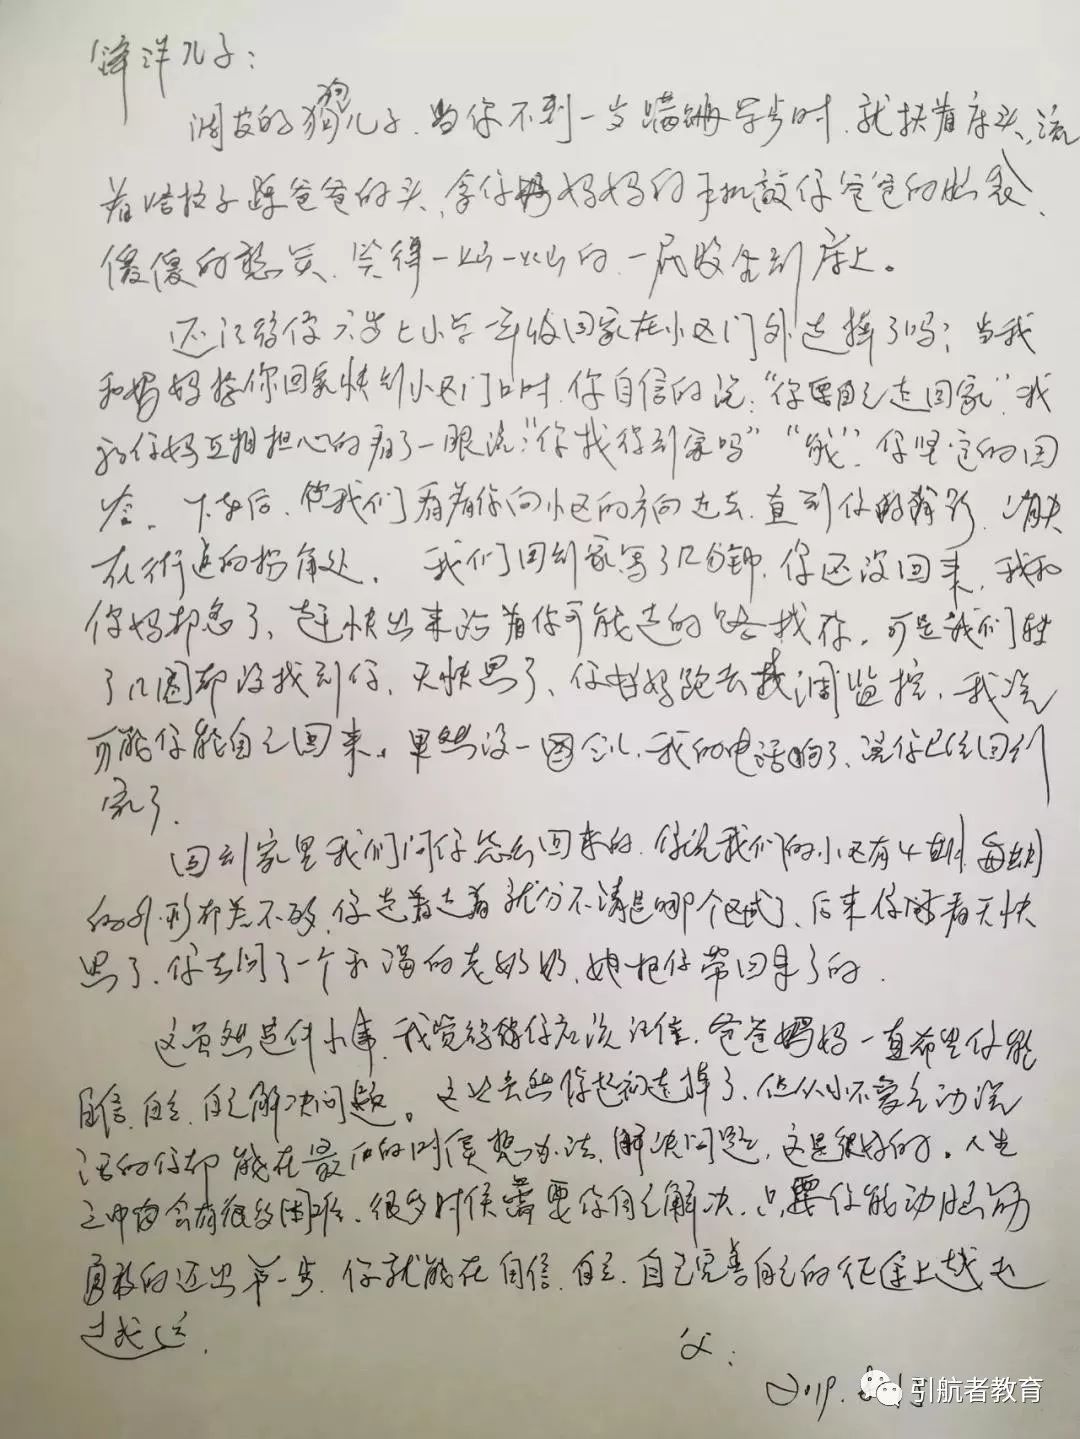 洋儿子：
调皮的儿子，当你不到一岁蹒跚学步时，就扶着床头，流
着哈拉子踩爸爸的头，拿你妈妈的手机敲你爸爸的脑袋，
傻傻的憨笑，笑得一一的，一屁股坐到床上。
还记得你六岁上小学一年级回家在小区门外走掉了吗？当我
和妈妈接你回家快到小区门口时，你自信的说：“你要自己走回家”，我
和你妈互相担心的看了一眼说：“你找得到家吗”“能”，你坚定的回
答。下车后，我们看着你向小区的方向走去，直到你的身影，消失
在街道的拐角处。我们回到家等了几分钟，你还没回来，我和
你妈都急了，赶快出来沿着你可能走的路找你，可是我们转
了几圈都没找到你，天快黑了，你妈跑去调监控，我说
可能你能自己回来。果然没一会儿，我的电话响了，说你已经回到
家了。
回到家里我们问你怎么回来的，你说我们的小区有4，每
的外形都差不多，你走着走着就分不清是哪个区域了，后来你看天快
黑了，你去问了一个和蔼的老奶奶，她把你带回来了的。
这虽然是件小事，我觉得你应该记住，爸爸妈妈一直希望你能
自信、自立、自己解决问题。你起初走掉了，但从小不爱主动说
话的你却能在最后的时候想办法，解决问题，这是很好的。人生
之中会有很多困难，很多时候需要你自己解决，只要你能动脑筋
勇敢的迈出第一步，你就能在自信、自立、自己完善自己的征途上越走
越远。
父：
2019.
引航者教育